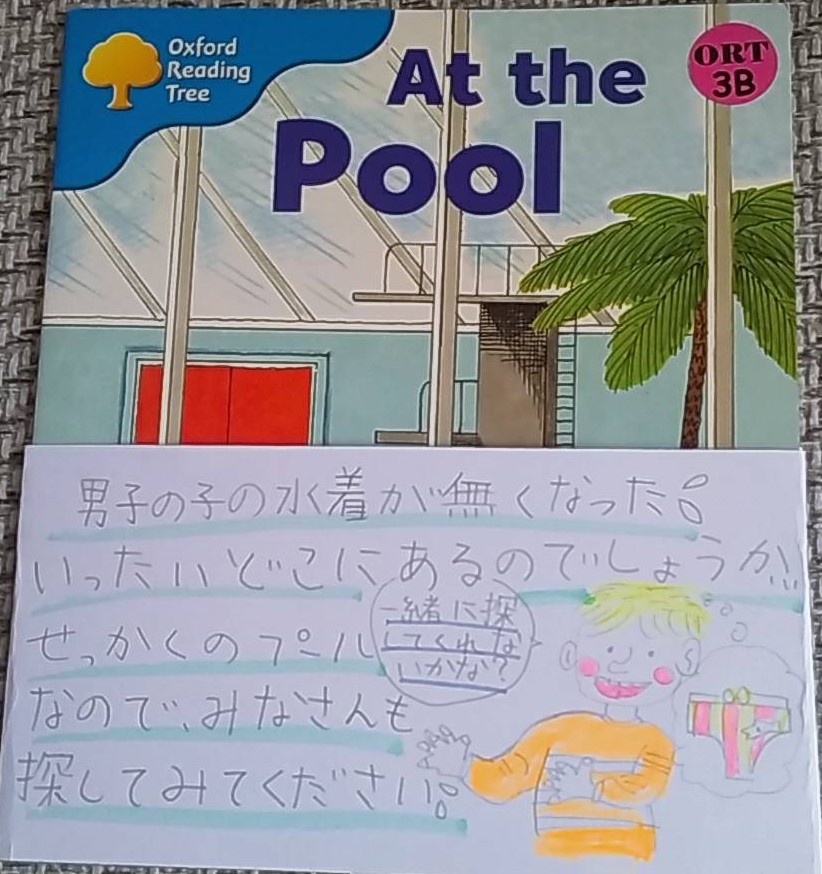 Oxford
Reading
Tree
At the
Pool
ORT
3B
男子の子の水着が無くなった!
いったいどこにあるのでしょうか。
せっかくのプール
なので、みなさんも
探してみてください!
一緒に探
してくれな
いかな?